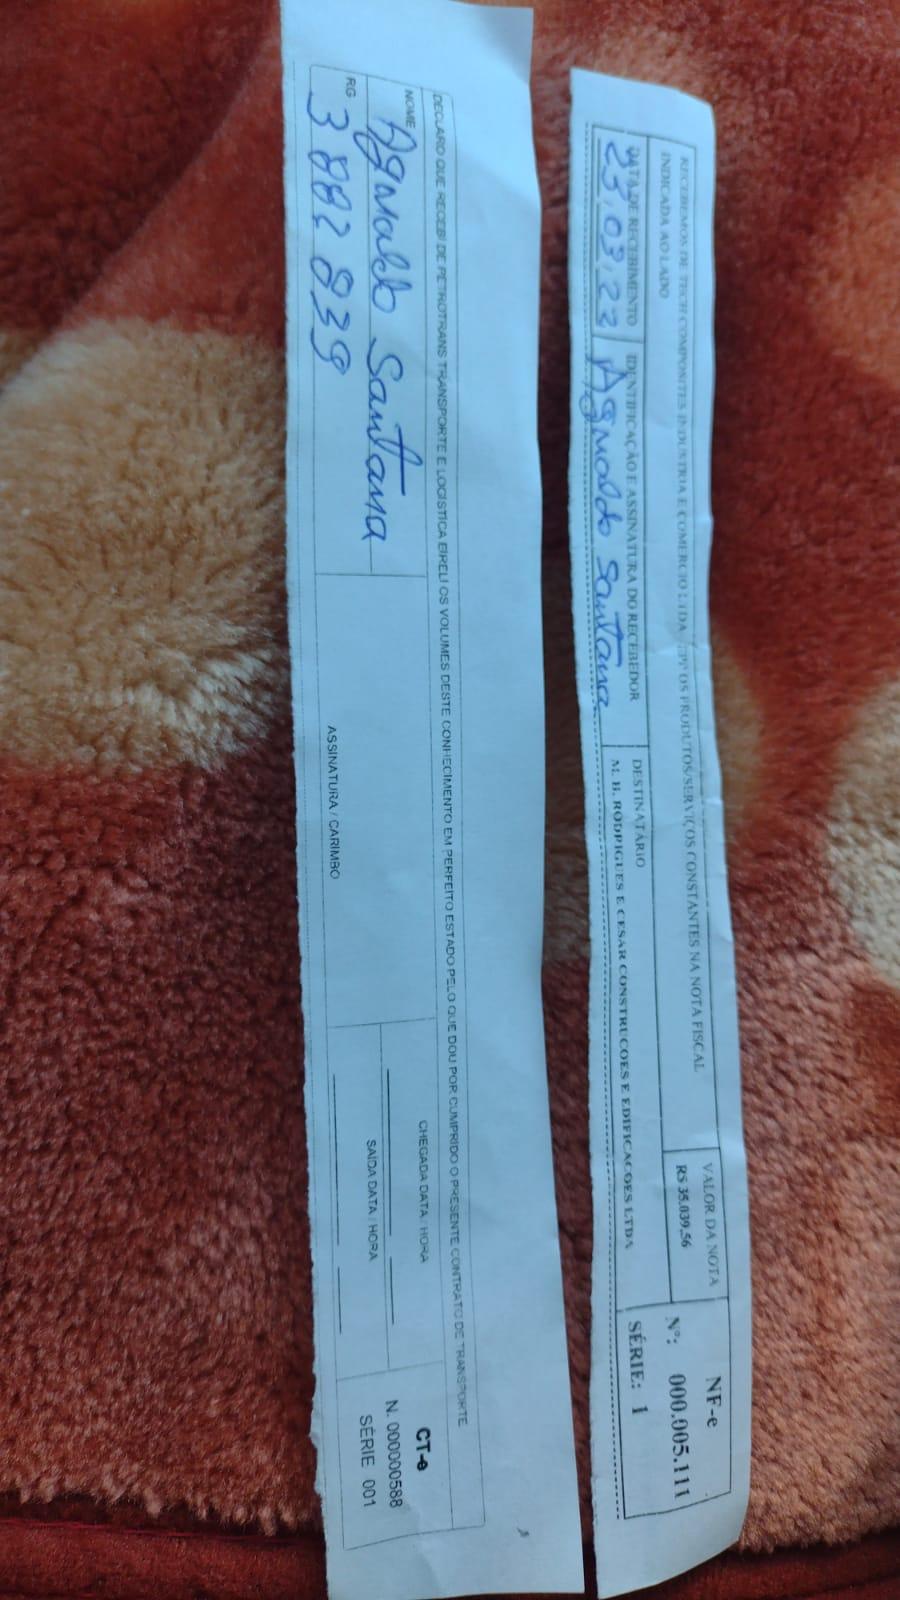 RECEBEMOS DE TECH COMPOSITES INDUSTRIA E COMERCIO LTDA EPP OS PRODUTOS/SERVIÇOS CONSTANTES NA NOTA FISCAL
INDICADA AO LADO
VALOR DA NOTA
R$ 35.039,56
DATA DE RECEBIMENTO
25,03,22
IDENTIFICAÇÃO E ASSINATURA DO RECEBEDOR
Agnaldo Santana
DESTINATÁRIO
M. H. RODRIGUES E CESAR CONSTRUCOES E EDIFICACOES LTDA
NF-e
Nº: 000.005.111
SÉRIE: 1
DECLARO QUE RECEBI DE PETROTRANS TRANSPORTE E LOGISTICA EIRELI OS VOLUMES DESTE CONHECIMENTO EM PERFEITO ESTADO PELO QUE DOU POR CUMPRIDO O PRESENTE CONTRATO DE TRANSPORTE
NOME
Agnaldo Santana
RG
3 882 839
ASSINATURA / CARIMBO
CHEGADA DATA / HORA
SAÍDA DATA / HORA
CT-e
N. 000000588
SÉRIE 001